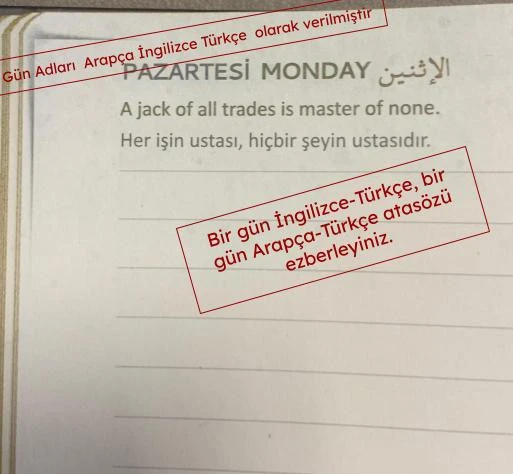 Gün Adları Arapça İngilizce Türkçe olarak verilmiştir
PAZARTESİ MONDAY الإثنين
A jack of all trades is master of none.
Her işin ustası, hiçbir şeyin ustasıdır.
Bir gün İngilizce-Türkçe, bir
gün Arapça-Türkçe atasözü
ezberleyiniz.